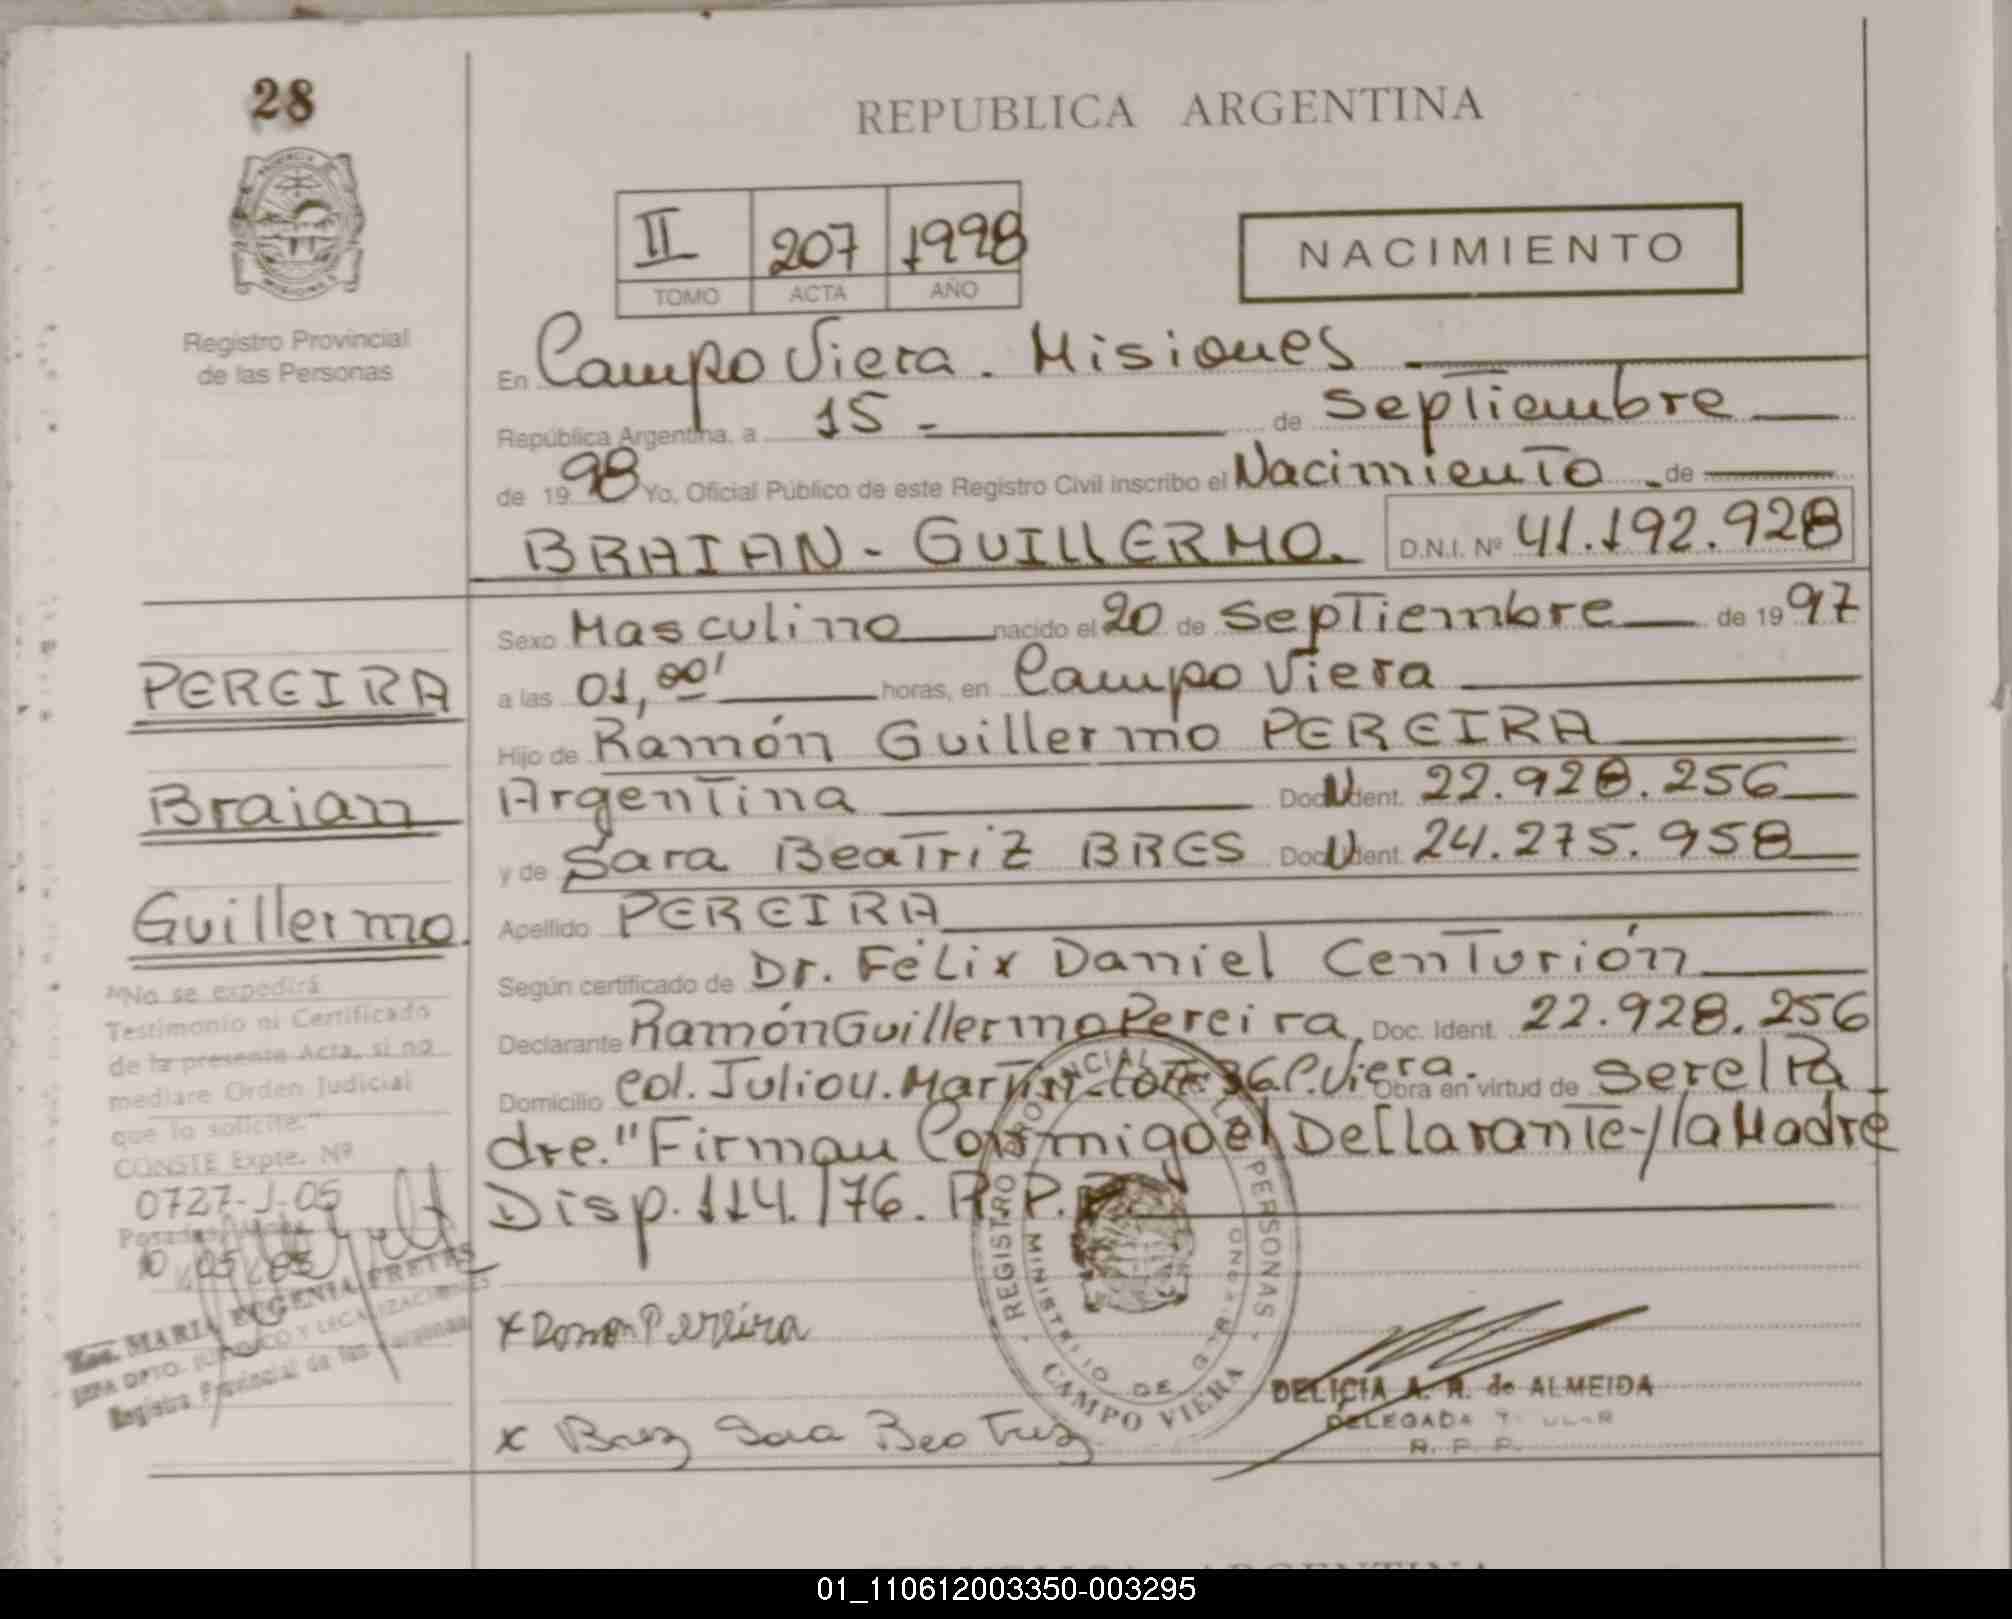 28
REPUBLICA ARGENTINA
II 207 1998
TOMO ACTA AÑO
NACIMIENTO
Registro Provincial
de las Personas
En Campo Viera. Misiones
República Argentina, a 15 - de Septiembre
de 1998 Yo, Oficial Público de este Registro Civil inscribo el Nacimiento de
BRAIAN - GUILLERMO. D.N.I. Nº 41.192.928
Sexo Masculino nacido el 20 de Septiembre de 1997
a las 01,00' horas, en Campo Viera
Hijo de Ramón Guillermo PEREIRA
Argentina Doc. Ident. 22.928.256
y de Sara Beatriz BRES Doc. Ident. 24.275.958
Apellido PEREIRA
Según certificado de Dr. Félix Daniel Centurión
Declarante Ramón Guillermo Pereira, Doc. Ident. 22.928.256
Domicilio Col. Julio U. Martin-Lote 36 C. Viera. Obra en virtud de ser el Pa
dre. "Firman Conmigo el Declarante-/la Madre
Disp. 114./76. R.P.P.
PEREIRA
Braian
Guillermo
"No se expedirá
Testimonio ni Certificado
de la presente Acta, si no
mediare Orden Judicial
que lo solicite."
CONSTE Expte. Nº
0727-J-05
MARIA EUGENIA FRETES
JEFA DPTO. JURIDICO Y LEGALIZACIONES
Registro Provincial de las Personas
x Ramon Pereira
x Brez Sara Beatrez
REGISTRO PROVINCIAL DE LAS PERSONAS
MINISTERIO DE GOBIERNO
CAMPO VIERA
DELICIA A. R. de ALMEIDA
DELEGADA TITULAR
R. P. P.
REPUBLICA ARGENTINA
01_110612003350-003295